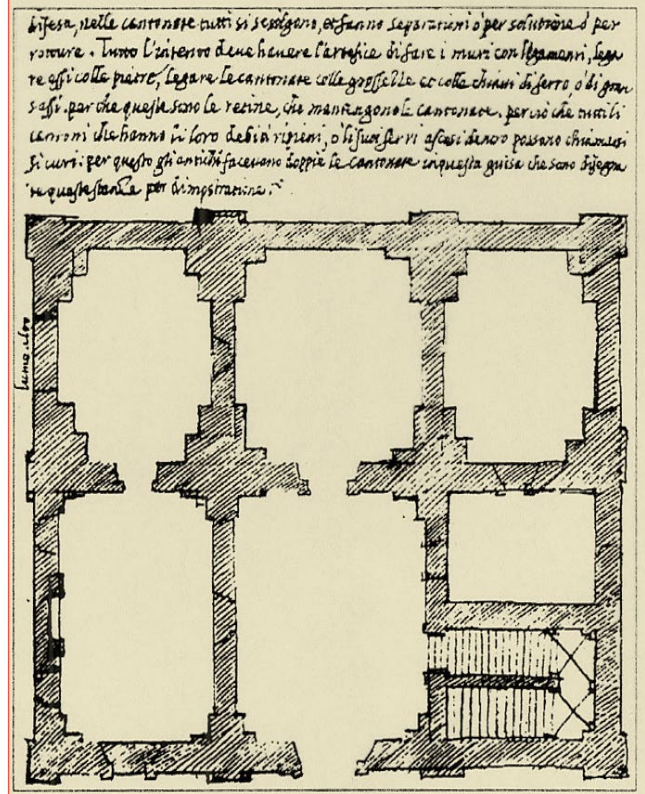 difesa, nelle cantonate tutti si sciolgano, et fanno separationi ò per solutione ò per
rotture. Tutto l'intento deve havere l'artefice di fare i muri con legamenti, lega
re essi colle pietre, legare le cantonate colle grosselle et colle chiavi di ferro, ò di gran
sassi. per che queste sono le retine, che mantengono le cantonate. per ciò che tutti li
cantoni che hanno li loro debiti ripieni, ò li suoi ferri ascosi dentro possono chiamarsi
sicuri: per questo gli antichi facevano doppie le cantonate in questa guisa che sono disegna
te queste stantie per dimostratione.